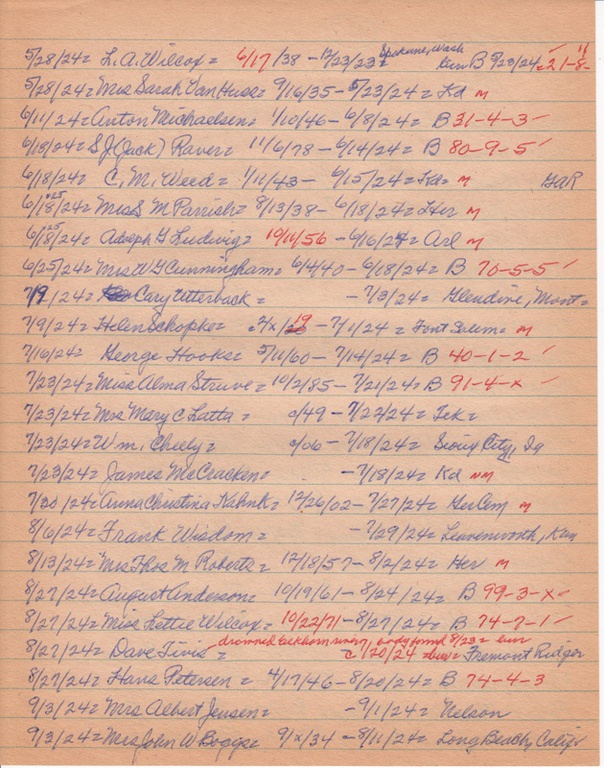 5/28/24= L.A. Wilcox= 6/17/38 - 12/23/23= Spokane, Wash bur B 5/28/24=21-8-11
5/28/24= Mrs Sarah Van Huss= 9/16/35 - 5/23/24= Kd M
6/11/24= Anton Michaelsen= 1/10/46 - 6/8/24= B 31-4-3 ✓
6/18/24= S J (Jack) Raver= 11/6/78 - 6/14/24= B 80-9-5 ✓
6/18/24= C. M. Weed= 1/11/43 - 6/15/24= Kd= M GAR
6/18/24= Miss M Parrish= 8/13/38 - 6/18/24= Her M
6/18/24= Adolph G Ludwig= 10/11/56 - 6/16/24= Arl M
6/25/24= Mrs W G Cunningham= 6/4/40 - 6/18/24= B 70-5-5 ✓
7/9/24= Cary Utterback= - 7/3/24= Glendive, Mont=
7/9/24= Helen Schopke= 2/x/19 - 7/1/24= Font M
7/16/24= George Hooks= 5/11/60 - 7/14/24= B 40-1-2 ✓
7/23/24= Miss Alma Struve= 10/2/85 - 7/21/24= B 91-4-x ✓
7/23/24= Mrs Mary C Latta= c/49 - 7/22/24= Tek=
7/23/24= Wm. Cheely= c/06 - 7/18/24= Sioux City, Ia
7/23/24= James McCracken= - 7/18/24= Kd NM
7/30/24= Anna Christina Kahnk= 12/26/02 - 7/27/24= GerCem M
8/6/24= Frank Wisdom= - 7/29/24= Leavenworth, Kan
8/13/24= Mrs Thos M Roberts= 12/18/57 - 8/2/24= Her M
8/27/24= August Anderson= 10/19/61 - 8/24/24= B 99-3-x ✓
8/27/24= Miss Lettie Wilcox= 10/22/71 - 8/27/24= B 74-7-1 ✓
drowned Elkhorn river, body found 8/23= bur
8/27/24= Dave Tivis= c 7/20/24 = Fremont Ridge
8/27/24= Hans Petersen= 4/17/46 - 8/20/24= B 74-4-3
9/3/24= Mrs Albert Jensen= - 9/1/24= Nelson
9/3/24= Mrs John W Boggs= 9/x/34 - 8/11/24= Long Beach, Calif